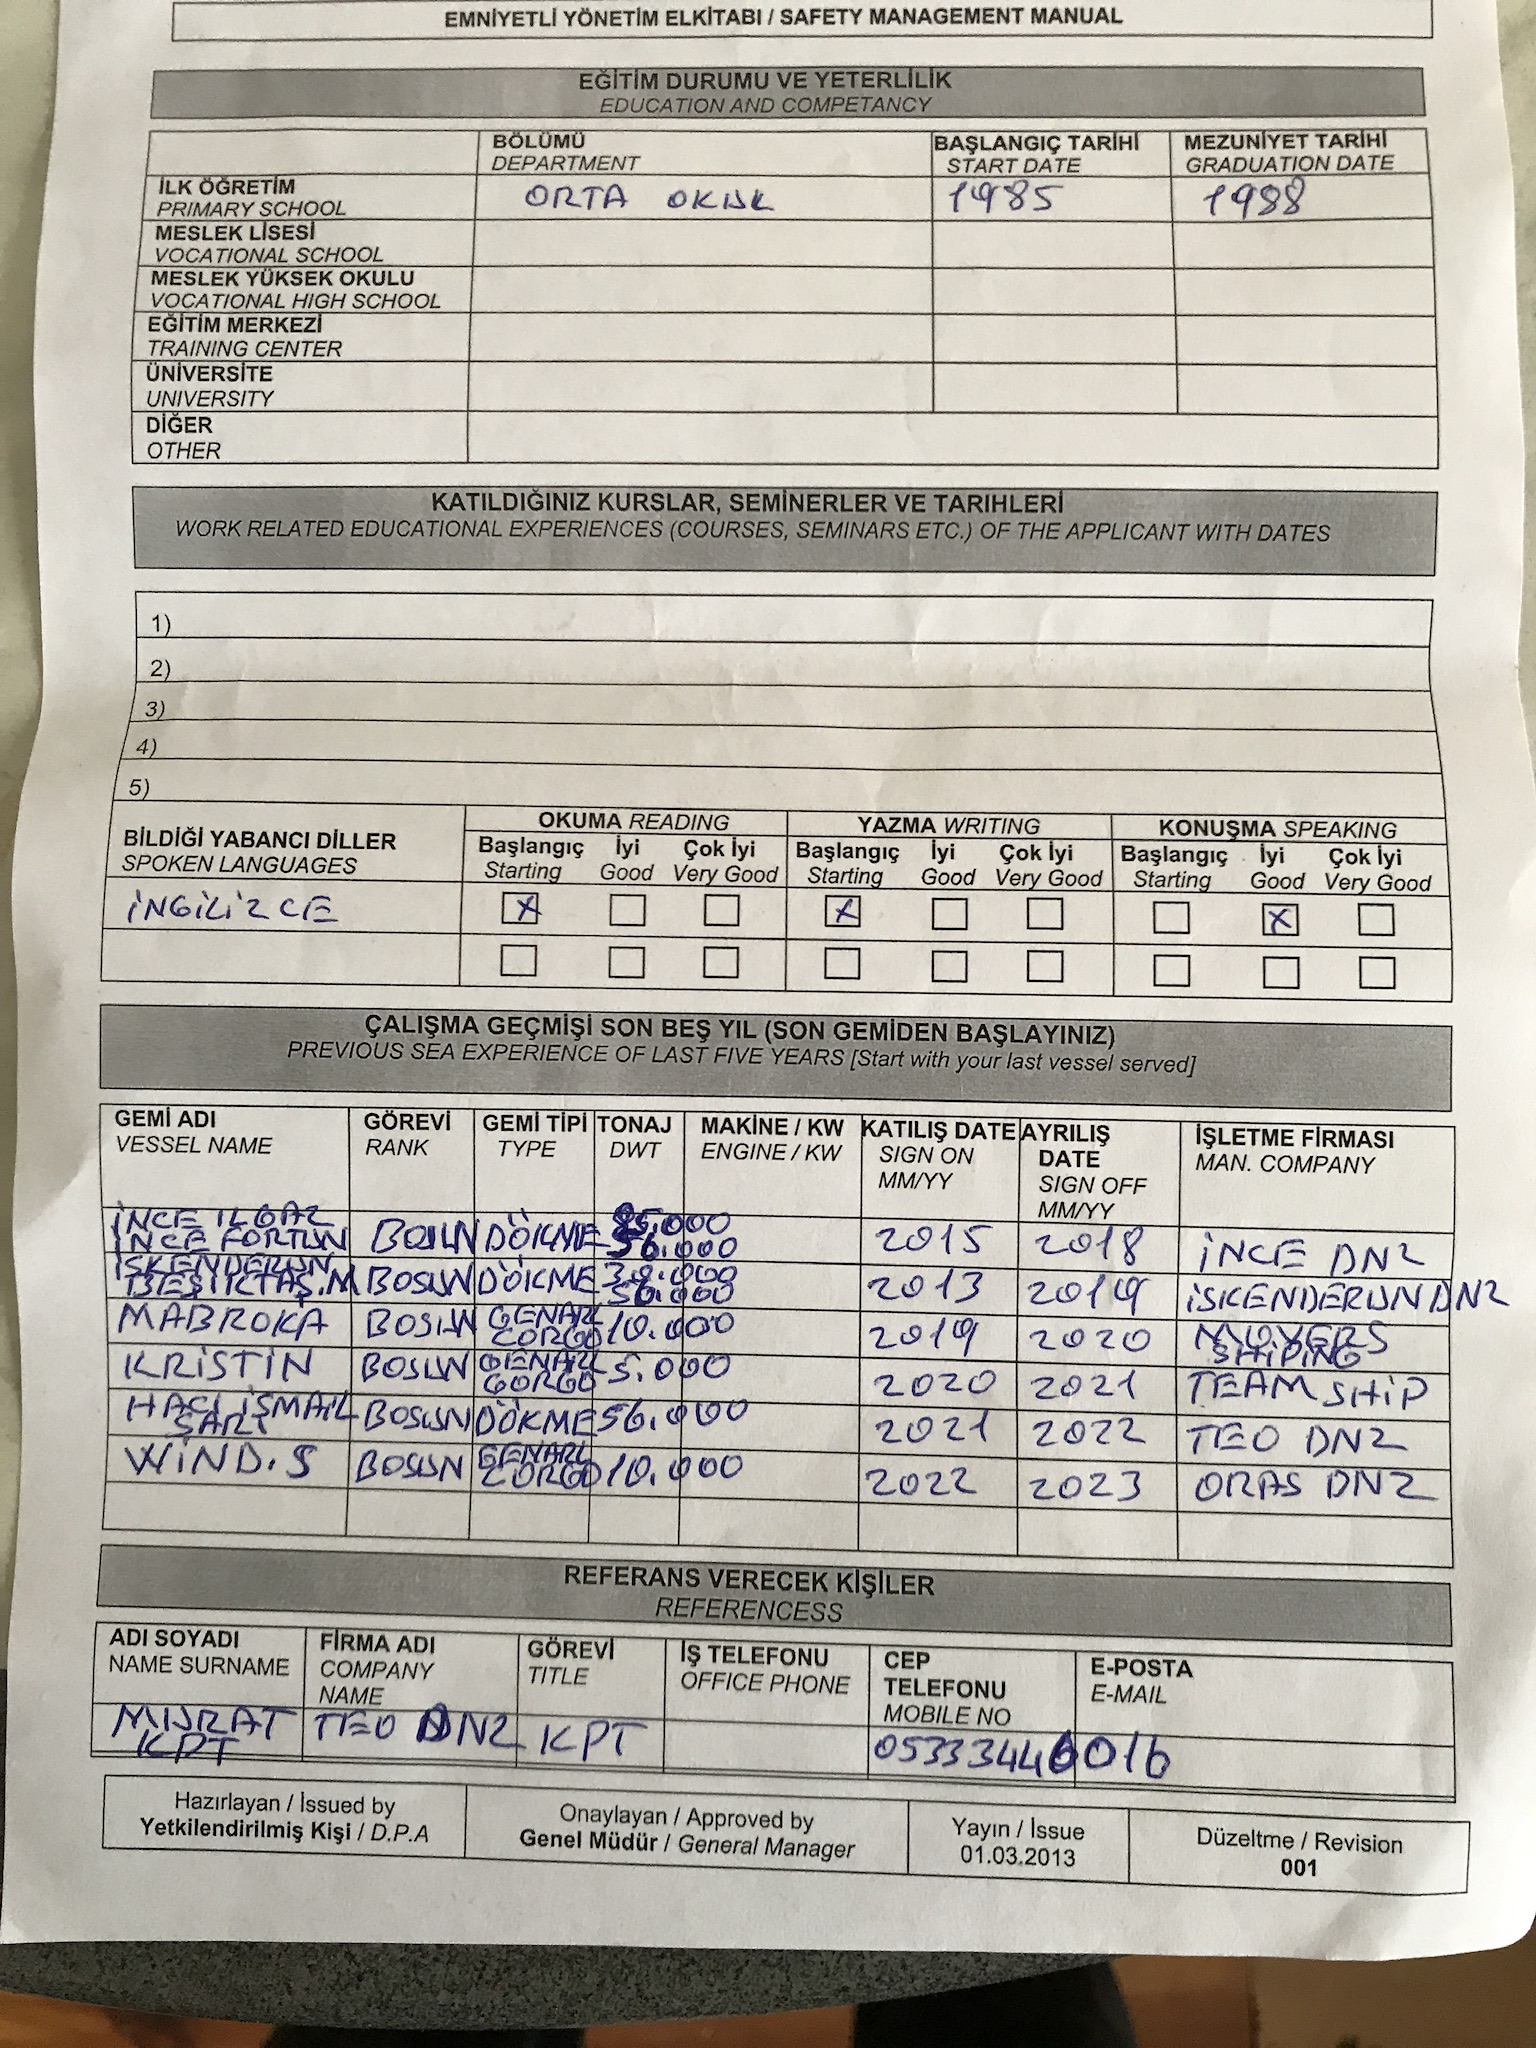 EMNİYETLİ YÖNETİM ELKİTABI / SAFETY MANAGEMENT MANUAL
EĞİTİM DURUMU VE YETERLİLİK
EDUCATION AND COMPETANCY
BÖLÜMÜ BAŞLANGIÇ TARİHİ MEZUNİYET TARİHİ
DEPARTMENT START DATE GRADUATION DATE
İLK ÖĞRETİM
PRIMARY SCHOOL ORTA OKUL 1985 1988
MESLEK LİSESİ
VOCATIONAL SCHOOL
MESLEK YÜKSEK OKULU
VOCATIONAL HIGH SCHOOL
EĞİTİM MERKEZİ
TRAINING CENTER
ÜNİVERSİTE
UNIVERSITY
DİĞER
OTHER
KATILDIĞINIZ KURSLAR, SEMİNERLER VE TARIHLERİ
WORK RELATED EDUCATIONAL EXPERIENCES (COURSES, SEMINARS ETC.) OF THE APPLICANT WITH DATES
1)
2)
3)
4)
5)
BİLDİĞİ YABANCI DİLLER OKUMA READING YAZMA WRITING KONUŞMA SPEAKING
SPOKEN LANGUAGES Başlangıç İyi Çok İyi Başlangıç İyi Çok İyi Başlangıç İyi Çok İyi
Starting Good Very Good Starting Good Very Good Starting Good Very Good
İNGİLİZCE X X X
ÇALIŞMA GEÇMİŞİ SON BEŞ YIL (SON GEMİDEN BAŞLAYINIZ)
PREVIOUS SEA EXPERIENCE OF LAST FIVE YEARS [Start with your last vessel served]
GEMİ ADI GÖREVİ GEMİ TİPİ TONAJ MAKİNE / KW KATILIŞ DATE AYRILIŞ DATE İŞLETME FİRMASI
VESSEL NAME RANK TYPE DWT ENGINE / KW SIGN ON MM/YY SIGN OFF MM/YY MAN. COMPANY
İNCE ILGAZ 85.000
İNCE FORTUN BOSUN DÖKME 56.000 2015 2018 İNCE DNZ
İSKENDERUN
BEŞİKTAŞ.M BOSUN DÖKME 56.000 2013 2019 İSKENDERUN DNZ
MABROKA BOSUN GENARL CORGO 10.000 2019 2020 SHİPİNG
KRİSTİN BOSUN GENARL CORGO 5.000 2020 2021 TEAM SHİP
HACI İSMAİL SARI BOSUN DÖKME 56.000 2021 2022 TEO DNZ
WİND.S BOSUN GENARL CORGO 10.000 2022 2023 ORAS DNZ
REFERANS VERECEK KİŞİLER
REFERENCESS
ADI SOYADI FİRMA ADI GÖREVİ İŞ TELEFONU CEP TELEFONU E-POSTA
NAME SURNAME COMPANY NAME TITLE OFFICE PHONE MOBILE NO E-MAIL
MURAT KPT TEO DNZ KPT 05333446016
Hazırlayan / Issued by Onaylayan / Approved by Yayın / Issue Düzeltme / Revision
Yetkilendirilmiş Kişi / D.P.A Genel Müdür / General Manager 01.03.2013 001